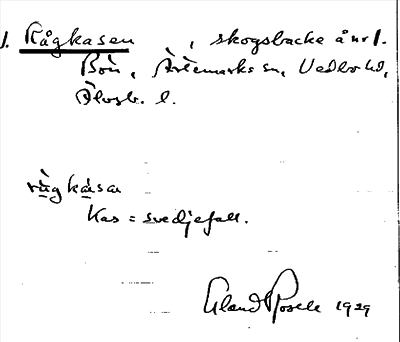 1. Rågkasen, skogsbacke å nr 1.
Bön, Ärtemarks sn, Vedbo hd,
Älvsb. l.
rågkasa
kas = svedjefall.
Erland Rosell 1929